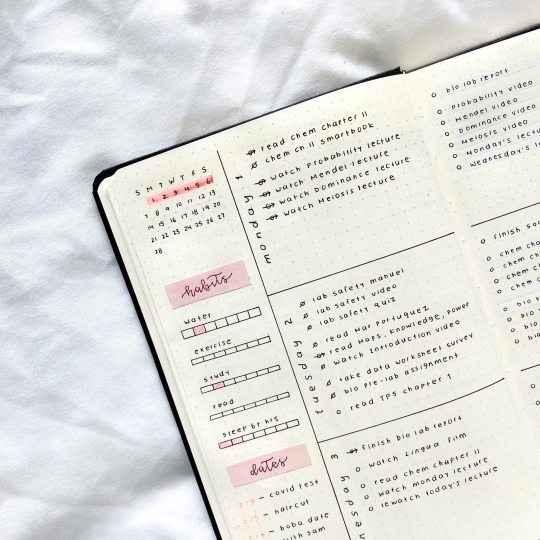 S M T W T F S
1 2 3 4 5 6
7 8 9 10 11 12 13
14 15 16 17 18 19 20
21 22 23 24 25 26 27
28
habits
water
exercise
study
read
sleep 6+ hrs
dates
2/3 – covid test
– haircut
– boba date
with sam
monday 1
read chem chapter 11
chem ch.11 smartbook
watch probability lecture
watch Mendel lecture
watch Dominance lecture
watch Meiosis lecture
tuesday 2
lab safety manual
lab safety video
lab safety quiz
read Mar Portuguez
read Maps, Knowledge, Power
watch Introduction video
take data worksheet survey
bio pre-lab assignment
read TPS chapter 1
nesday 3
finish bio lab report
watch Lingua film
read chem chapter 11
watch monday lecture
rewatch today's lecture
bio lab report
Probability video
Mendel video
Dominance video
Meiosis video
Monday's lectu
Wednesday's l
finish soc
chem cha
chem ch
chem ch
chem
bio
bio
bio
bia